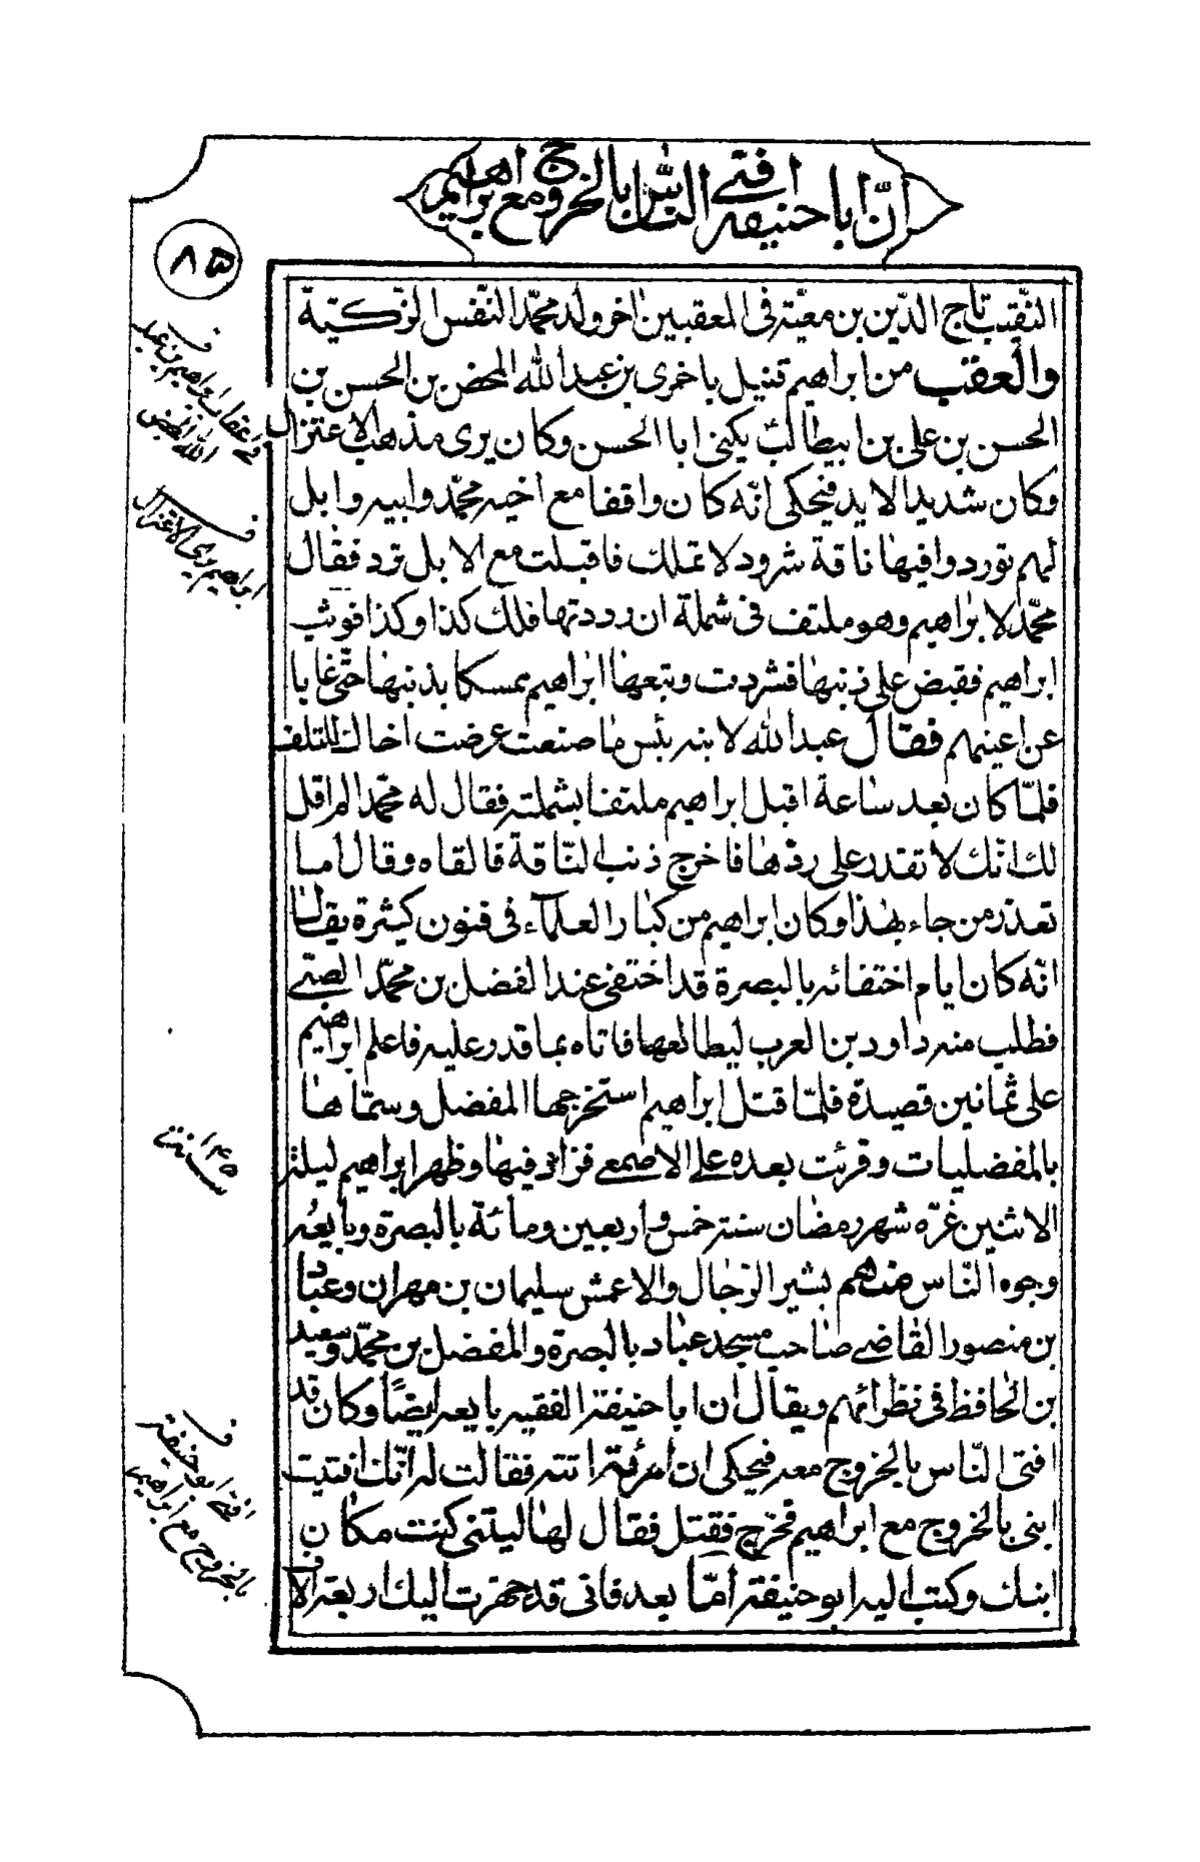 انّ ابا حنيفه افتى النّاس بالخروج مع ابراهيم
٨٥
النّقيب تاج الدّين بن معيّه فى المعقبين اخو ولد محمّد النّفس الزّكيّة
والعقب من ابراهيم قتيل باخمرى بن عبد الله المحض بن الحسن بن
الحسن بن على بن ابيطالب يكنى ابا الحسن وكان يرى مذهب الاعتزال
وكان شديد الايد فيحكى انّه كان واقفا مع اخيه محمّد وابيه وابل
لهم تورد وفيها ناقة شرود لا تملك فاقبلت مع الابل ترد فقال
محمّد لابراهيم وهو ملتف فى شملة ان رددتها فلك كذا وكذا فوثب
ابراهيم فقبض على ذنبها فشردت وتبعها ابراهيم ممسكا بذنبها حتّى غابا
عن اعينهم فقال عبد الله لابنه بئس ما صنعت عرضت اخاك للتلف
فلمّا كان بعد ساعة اقبل ابراهيم ملتفا بشملته فقال له محمّد الم اقل
لك انّك لا تقدر على ردّها فاخرج ذنب النّاقة فالقاه وقال اما
تعذر من جاء بهذا وكان ابراهيم من كبار العلمآء فى فنون كثيرة يقال
انّه كان ايام اختفائه بالبصرة قد اختفى عند الفضل بن محمّد الضبّى
فطلب منه دواوين العرب ليطالعها فاتاه بما قدر عليه فاعلم ابراهيم
على ثمانين قصيدة فلمّا قتل ابراهيم استخرجها المفضل وسمّاها
بالمفضليات وقرئت بعده على الاصمعى فزاد فيها وظهر ابراهيم ليلة
الاثنين غرّه شهر رمضان سنة خمس واربعين ومائة بالبصرة وبايعه
وجوه النّاس منهم بشير الرّحّال والاعمش سليمان بن مهران وعباد
بن منصور القاضى صاحب مسجد عباد بالبصرة والمفضل بن محمّد وسعيد
بن الحافظ فى نظرائهم ويقال ان ابا حنيفة الفقيه بايعه ايضًا وكان قد
افتى النّاس بالخروج معه فيحكى ان امرئة اتته فقالت له انّك افتيت
ابنى بالخروج مع ابراهيم فخرج فقتل فقال لها ليتنى كنت مكان
ابنك وكتب اليه ابو حنيفة امّا بعد فانى قد جهزت اليك اربعة آلاف
فى اعقاب ابراهيم بن عبد
الله المحض
ابراهيم يرى الاعتزال
سنة ١٤٥
افتى ابو حنيفة
بالخروج مع ابراهيم